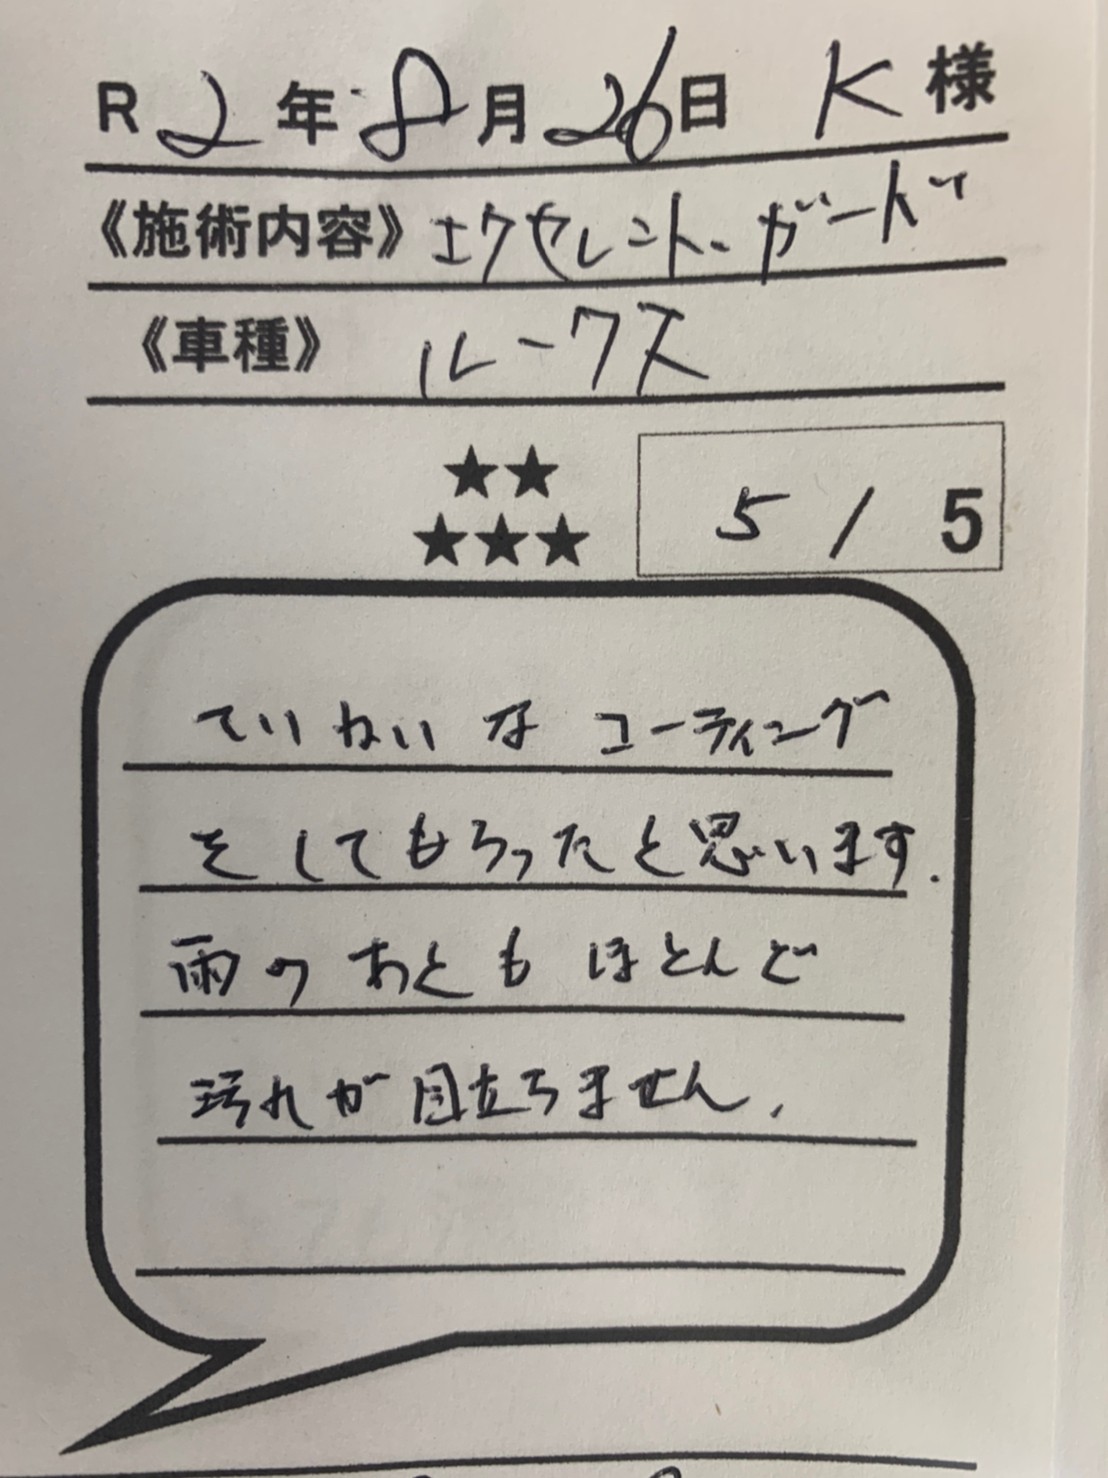 R 2 年 8 月 26 日 K 様
《施術内容》 エクセレント・ガード
《車種》 ルークス
★★
★★★
5 / 5
ていねいな コーティング
をしてもらったと思います.
雨のあとも ほとんど
汚れが目立ちません.